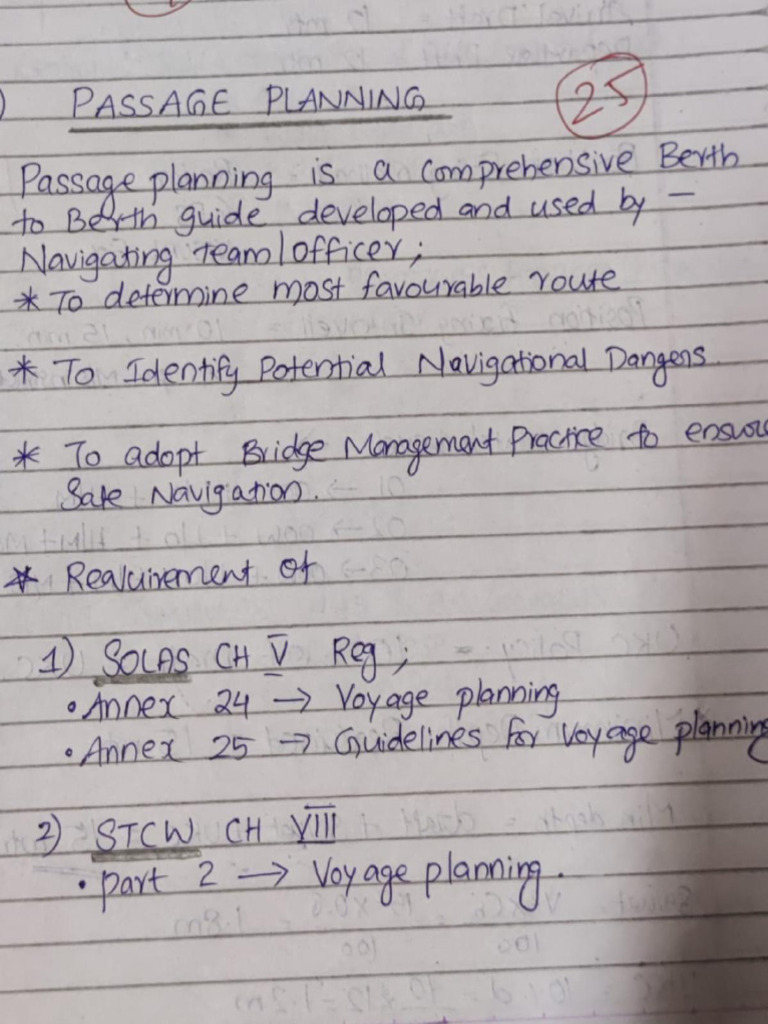 ) PASSAGE PLANNING 25
Passage planning is a comprehensive Berth
to Berth guide developed and used by -
Navigating team/officer;
* To determine most favourable route
* To Identify Potential Navigational Dangers.
* To adopt Bridge Management Practice to ensure
Safe Navigation.
* Realuirement of
1) SOLAS CH V Reg;
• Annex 24 → Voyage planning
• Annex 25 → Guidelines for voyage planning
2) STCW CH VIII
• part 2 → Voyage planning.